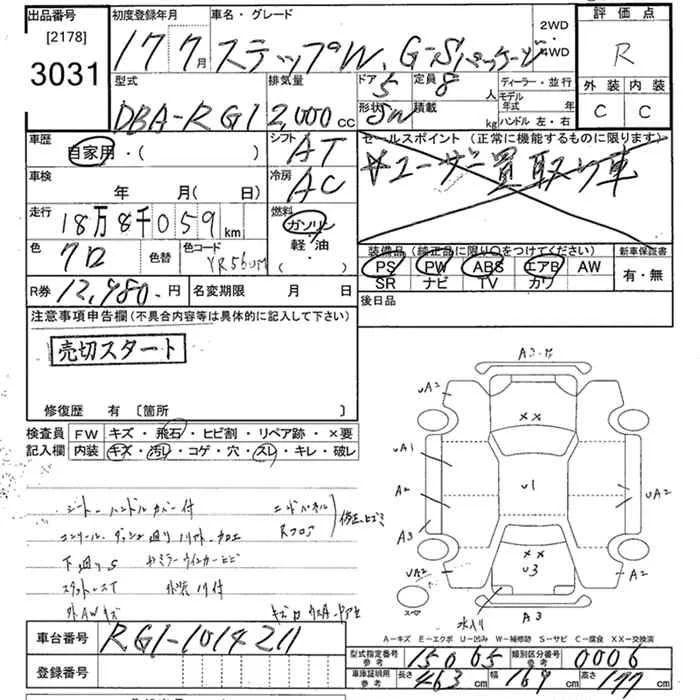 出品番号 初度登録年月 車名・グレード 2WD 評価点
[2178] 3031 17 7月 ステップW. G-Sパッケージ 4WD R
型式 排気量 ドア 5 定員 8人 ディーラー・並行 外装 内装
DBA-RG1 2,000cc 形状 SW 積載 kg モデル年式 年 ハンドル 左・右 C C
車歴 自家用・( ) シフト AT セールスポイント (正常に機能するものに限ります)
車検 年 月(日) 冷房 AC ☆ユーザー買取り車
走行 18万8千059km 燃料 ガソリン・軽油・( )
色 クロ 色替 色コード 装備品 (純正品に限り〇をつけてください) 新車保証書
PS PW ABS エアB AW 有・無
SR ナビ TV カワ
R券 12,980.円 名変期限 月 日 後日品
注意事項申告欄(不具合内容等は具体的に記入して下さい)
売切スタート
修復歴 有 〔箇所 〕
検査員 FW キズ・飛石・ヒビ割・リペア跡・×要
記入欄 内装 キズ・汚レ・コゲ・穴・スレ・キレ・破レ
シート・ハンドルカバー付
下廻りS
外AWキズ
Rフロア
UA2
UA1
A2
A3
UA2
××
U1
××
U3
A2
UA2
A2
A3
水入り
スペア
A-キズ E-エクボ U-凹み W-補修跡 S-サビ C-腐食 XX-交換済
車台番号 RG1-1014211
登録番号
型式指定番号 参考 15065 類別区分番号 参考 0006
車庫証明用 参考 長さ 463cm 幅 169cm 高さ 177cm